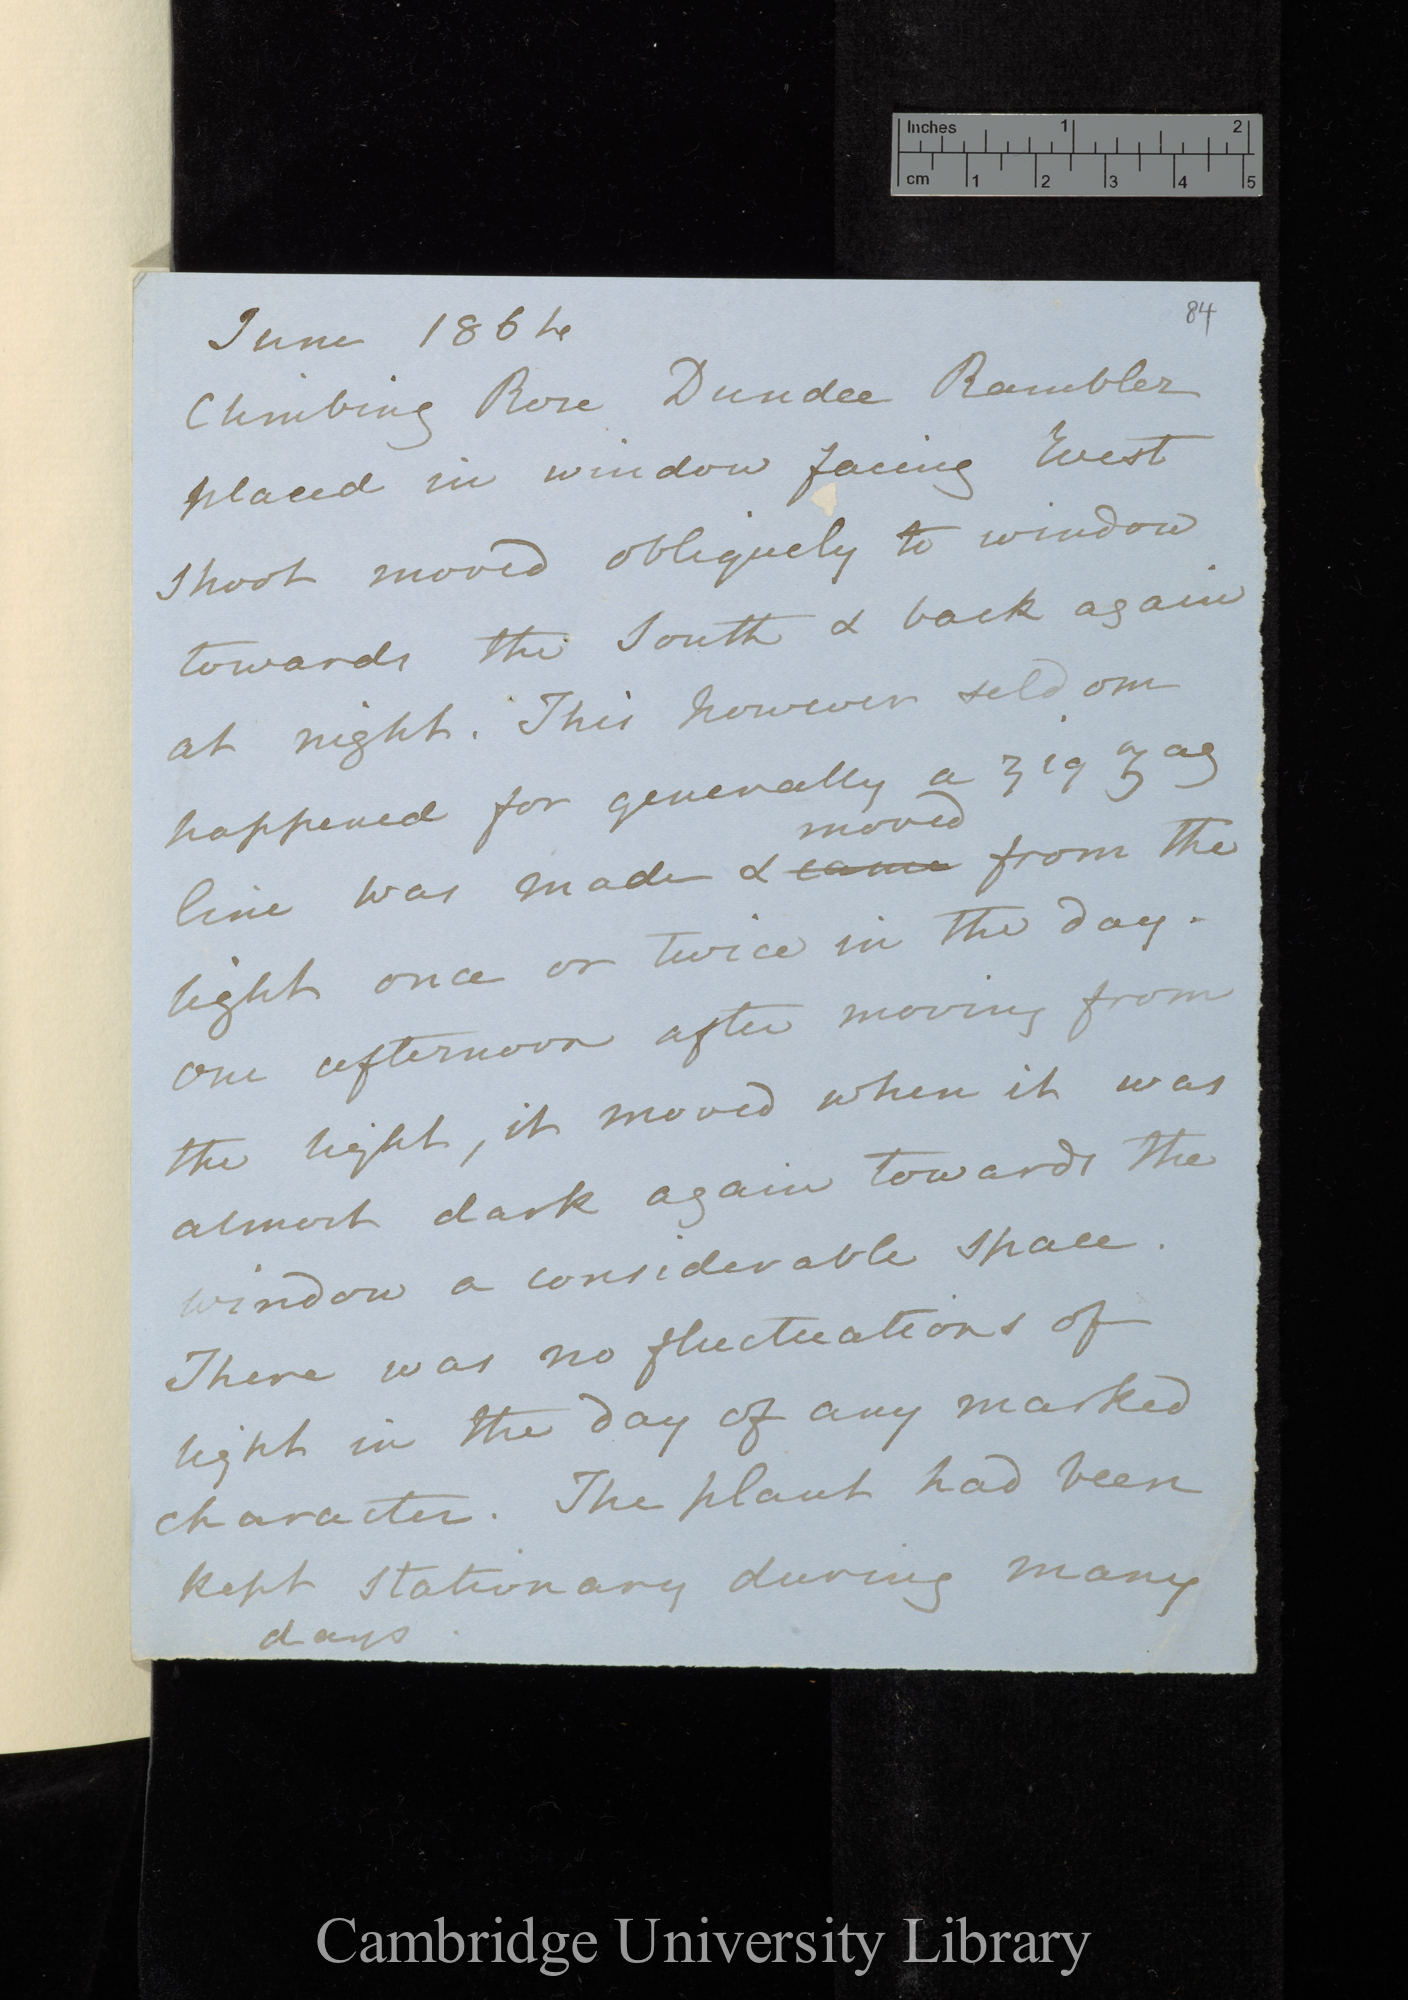 Inches 1 2
cm 1 2 3 4 5
84
June 1864
Climbing Rose Dundee Rambler
placed in window facing West
shoot moved obliquely to window
towards the South & back again
at night. This however seldom
happened for generally a zig zag
moved
line was made & came from the
light once or twice in the day.
One afternoon after moving from
the light, it moved when it was
almost dark again towards the
window a considerable space.
There was no fluctuations of
light in the day of any marked
character. The plant had been
kept stationary during many
days.
Cambridge University Library